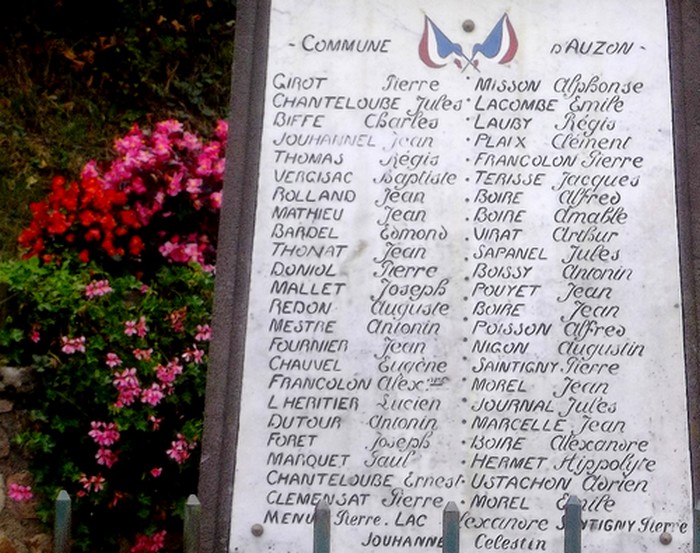 - COMMUNE D'AUZON -
GIROT Pierre · MISSON Alphonse
CHANTELOUBE Jules · LACOMBE Emile
BIFFE Charles · LAUBY Régis
JOUHANNEL Jean · PLAIX Clément
THOMAS Régis · FRANCOLON Pierre
VERGISAC Baptiste · TERISSE Jacques
ROLLAND Jean · BOIRE Alfred
MATHIEU Jean · BOIRE Amable
BARDEL Edmond · VIRAT Arthur
THONAT Jean · SAPANEL Jules
DONIOL Pierre · BOISSY Antonin
MALLET Joseph · POUYET Jean
REDON Auguste · BOIRE Jean
MESTRE Antonin · POISSON Alfred
FOURNIER Jean · NIGON Augustin
CHAUVEL Eugène · SAINTIGNY Pierre
FRANCOLON Alex · MOREL Jean
LHERITIER Lucien · JOURNAL Jules
DUTOUR Antonin · MARCELLE Jean
FORET Joseph · BOIRE Alexandre
MARQUET Paul · HERMET Hippolyte
CHANTELOUBE Ernest · USTACHON Adrien
CLEMENSAT Pierre · MOREL Emile
MENU Pierre. LAC Pierre
JOUHANNE Celestin